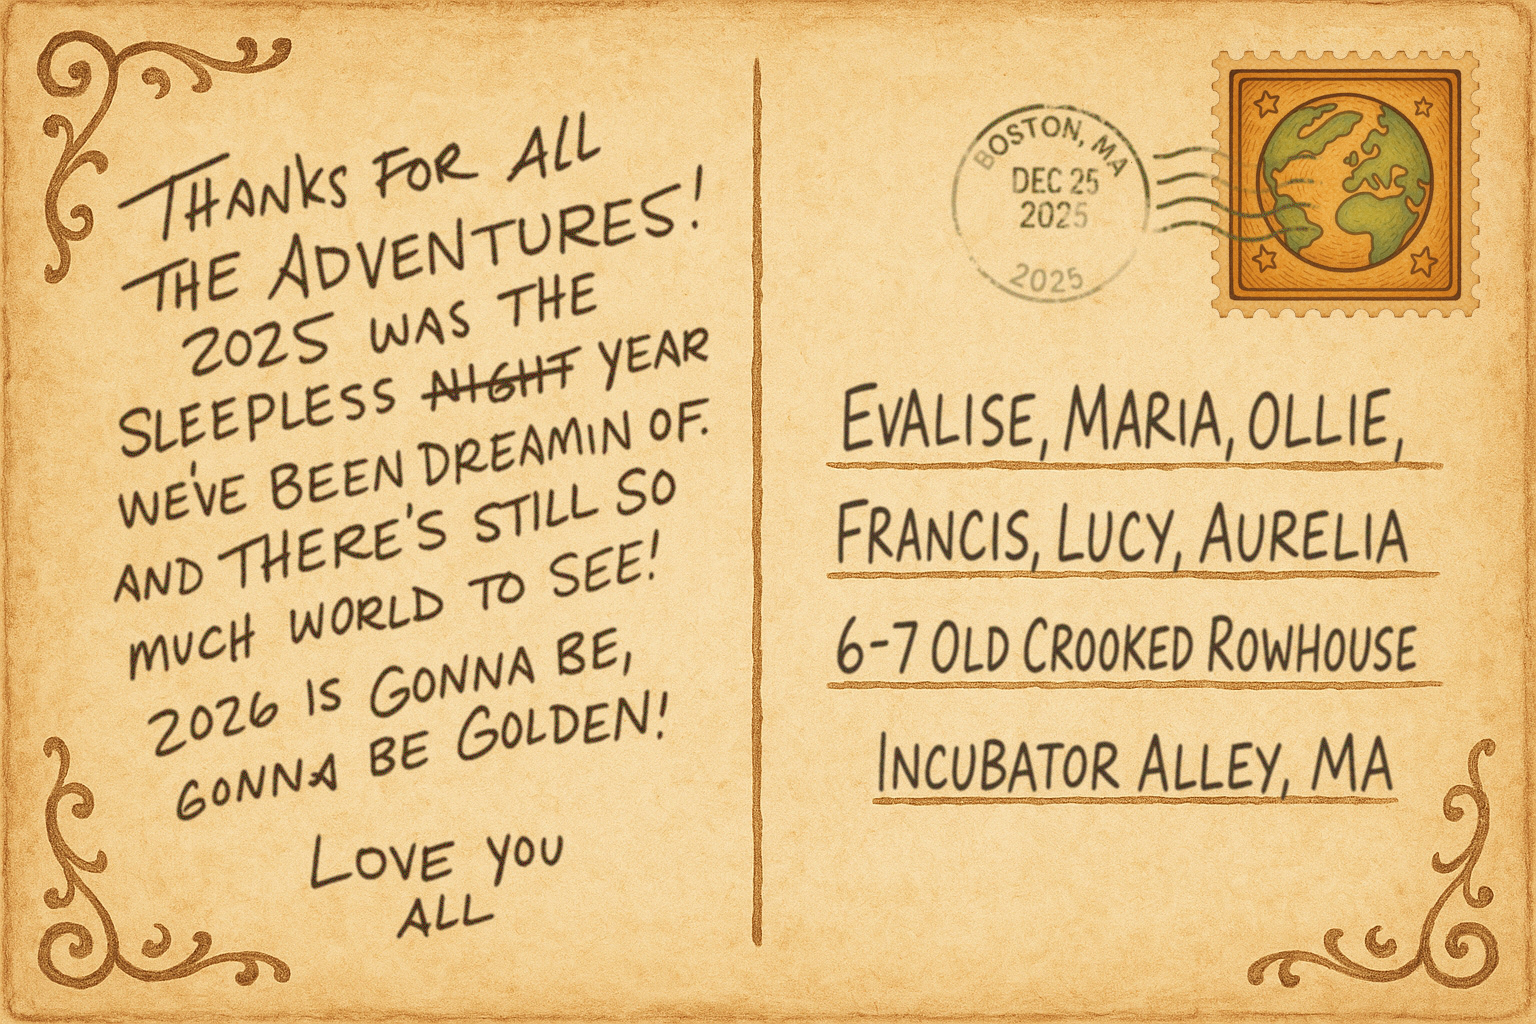 THANKS FOR ALL
THE ADVENTURES!
2025 WAS THE
SLEEPLESS NIGHT YEAR
WE'VE BEEN DREAMIN OF.
AND THERE'S STILL SO
MUCH WORLD TO SEE!
2026 IS GONNA BE,
GONNA BE GOLDEN!
LOVE YOU
ALL
BOSTON, MA
DEC 25
2025
2025
EVALISE, MARIA, OLLIE,
FRANCIS, LUCY, AURELIA
6-7 OLD CROOKED ROWHOUSE
INCUBATOR ALLEY, MA